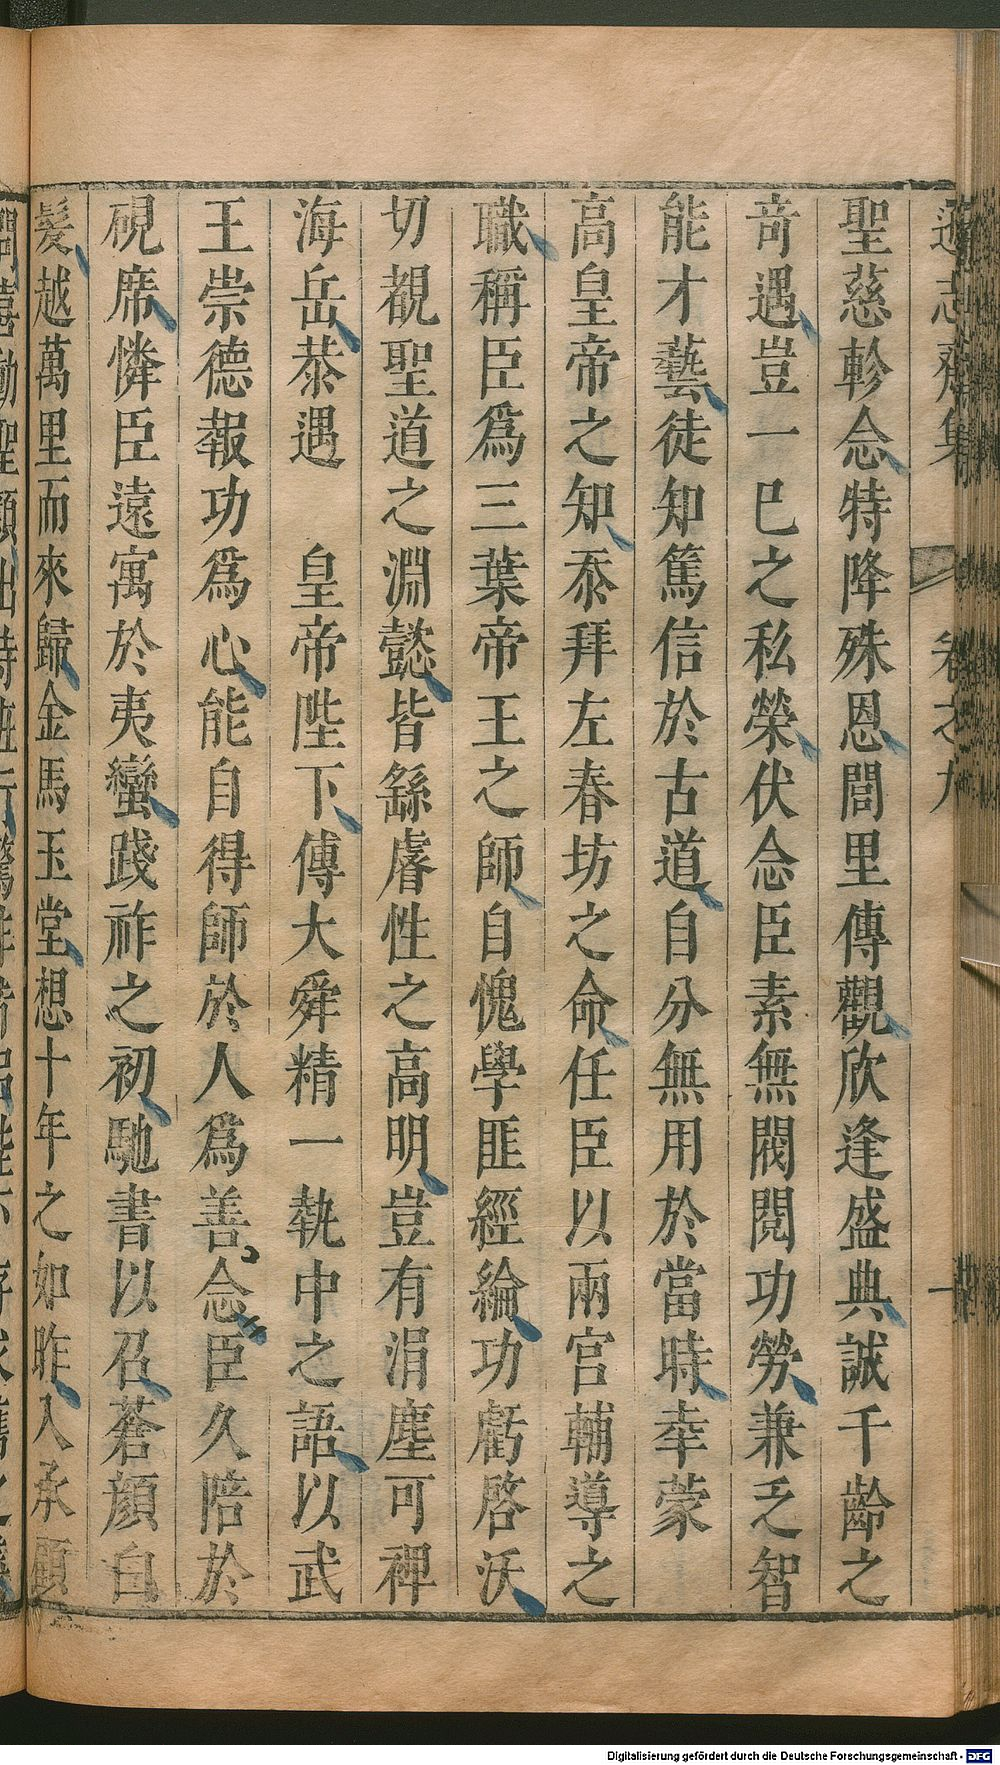 遜志齋集 卷之九 十
聖慈軫念特降殊恩閭里傳觀欣逢盛典誠千齡之
竒遇豈一已之私榮伏念臣素無閥閱功勞兼乏智
能才藝徒知篤信於古道自分無用於當時幸蒙
高皇帝之知忝拜左春坊之命任臣以兩宮輔導之
職稱臣爲三葉帝王之師自愧學匪經綸功虧啓沃
切覩聖道之淵懿皆繇睿性之高明豈有涓塵可裨
海岳恭遇 皇帝陛下傳大舜精一執中之語以武
王崇德報功爲心能自得師於人爲善念臣久陪於
硯席憐臣遠寓於夷蠻踐祚之初馳書以召蒼顔白
髪越萬里而來歸金馬玉堂想十年之如昨入承顧
Digitalisierung gefördert durch die Deutsche Forschungsgemeinschaft - DFG